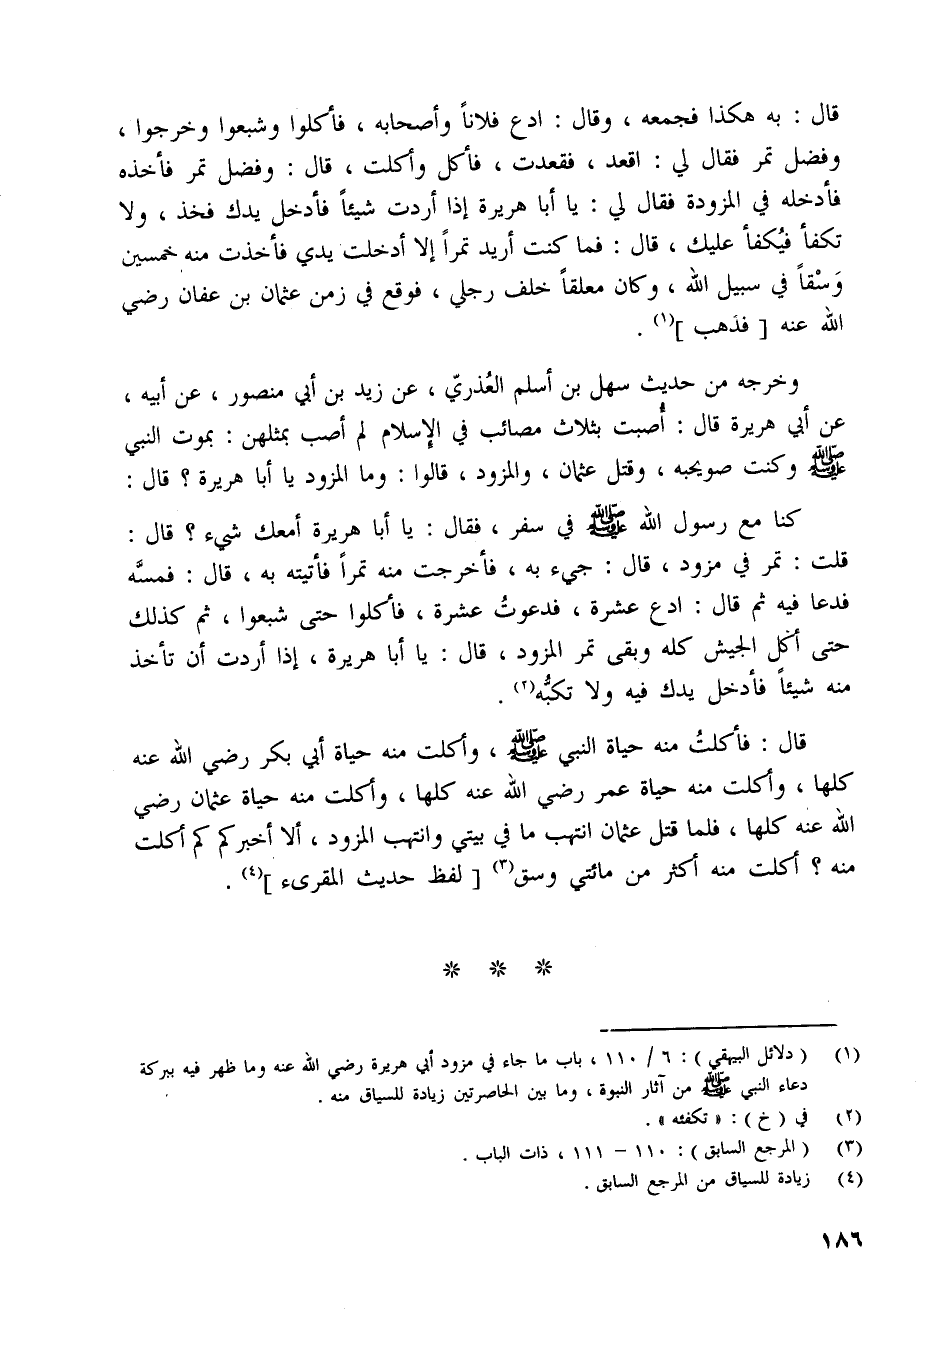 قال : به هكذا فجمعه ، وقال : ادع فلاناً وأصحابه ، فأكلوا وشبعوا وخرجوا ،
وفضل تمر فقال لي : اقعد ، فقعدت ، فأكل وأكلت ، قال : وفضل تمر فأخذه
فأدخله في المزودة فقال لي : يا أبا هريرة إذا أردت شيئاً فأدخل يدك فخذ ، ولا
تكفأ فيُكفأ عليك ، قال : فما كنت أريد تمراً إلا أدخلت يدي فأخذت منه خمسين
وَسْقاً في سبيل الله ، وكان معلقاً خلف رجلي ، فوقع في زمن عثمان بن عفان رضي
الله عنه [ فذهب ](١) .
وخرجه من حديث سهل بن أسلم العُذريّ ، عن زيد بن أبي منصور ، عن أبيه ،
عن أبي هريرة قال : أُصبت بثلاث مصائب في الإسلام لم أصب بمثلهن : بموت النبي
ﷺ وكنت صويحبه ، وقتل عثمان ، والمزود ، قالوا : وما المزود يا أبا هريرة ؟ قال :
كنا مع رسول الله ﷺ في سفر ، فقال : يا أبا هريرة أمعك شيء ؟ قال :
قلت : تمر في مزود ، قال : جيء به ، فأخرجت منه تمراً فأتيته به ، قال : فمسَّه
فدعا فيه ثم قال : ادع عشرة ، فدعوتُ عشرة ، فأكلوا حتى شبعوا ، ثم كذلك
حتى أكل الجيش كله وبقى تمر المزود ، قال : يا أبا هريرة ، إذا أردت أن تأخذ
منه شيئاً فأدخل يدك فيه ولا تكبُّه(٢) .
قال : فأكلتُ منه حياة النبي ﷺ ، وأكلت منه حياة أبي بكر رضي الله عنه
كلها ، وأكلت منه حياة عمر رضي الله عنه كلها ، وأكلت منه حياة عثمان رضي
الله عنه كلها ، فلما قتل عثمان انتهب ما في بيتي وانتهب المزود ، ألا أخبركم كم أكلت
منه ؟ أكلت منه أكثر من مائتي وسق(٣) [ لفظ حديث المقرىء ](٤) .
* * *
(١) ( دلائل البيهقي ) : ٦ / ١١٠ ، باب ما جاء في مزود أبي هريرة رضي الله عنه وما ظهر فيه ببركة
دعاء النبي ﷺ من آثار النبوة ، وما بين الحاصرتين زيادة للسياق منه .
(٢) في ( خ ) : « تكفئه » .
(٣) ( المرجع السابق ) : ١١٠ – ١١١ ، ذات الباب .
(٤) زيادة للسياق من المرجع السابق .
١٨٦